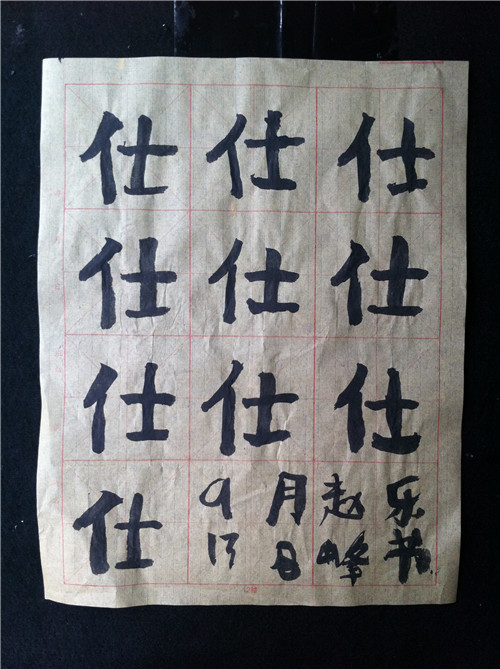 仕仕仕
仕仕仕
仕仕仕
仕
9月
13日
赵乐
峰书